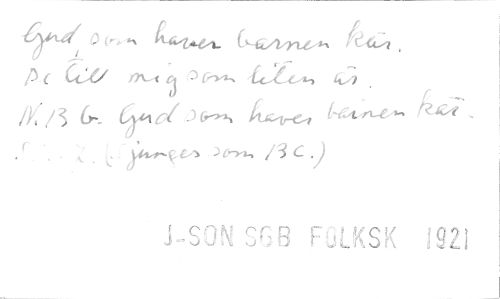 Gud, som haver barnen kär.
Se till mig som liten är.
N. 13 b. Gud som haver barnen kär.
(Sjunges som 13 c.)
J-SON SGB FOLKSK 1921